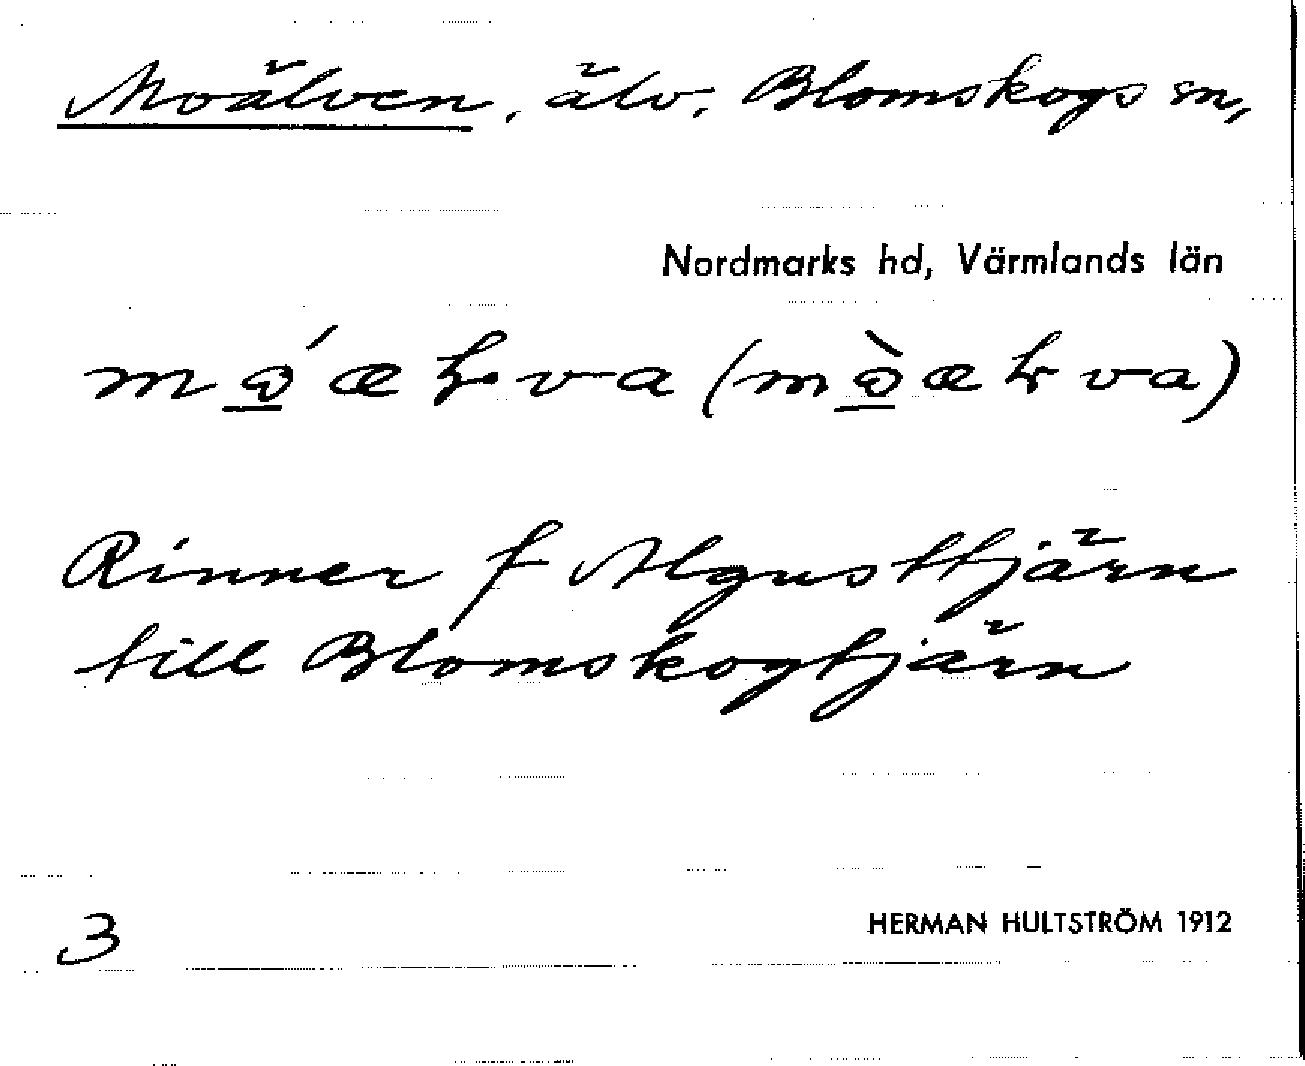 Moälven, älv, Blomskogs sn,
Nordmarks hd, Värmlands län
Rinner f Algusttjärn
till Blomskogtjärn
3
HERMAN HULTSTRÖM 1912